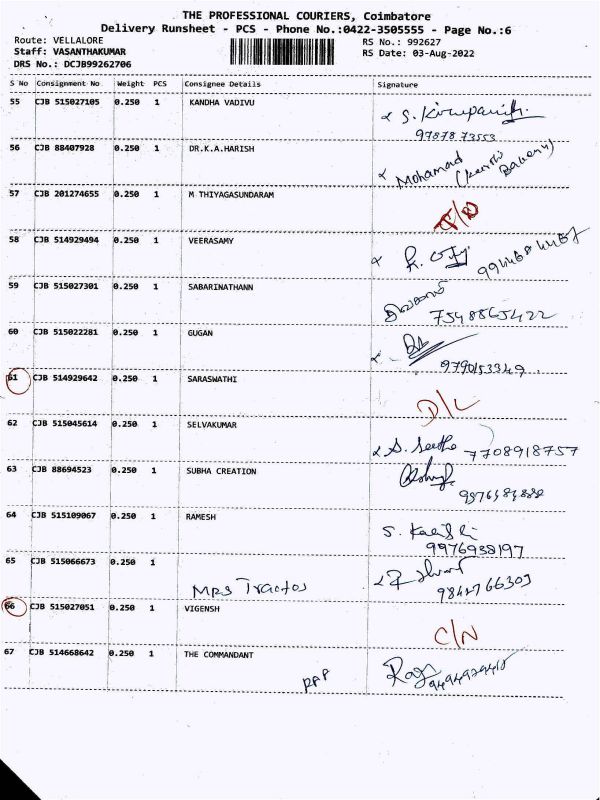 THE PROFESSIONAL COURIERS, Coimbatore
Delivery Runsheet - PCS - Phone No.:0422-3505555 - Page No.:6
Route: VELLALORE RS No.: 992627
Staff: VASANTHAKUMAR RS Date: 03-Aug-2022
DRS No.: DCJB99262706
S No Consignment No Weight PCS Consignee Details Signature
55 CJB 515027105 0.250 1 KANDHA VADIVU
97878 73553
56 CJB 88407928 0.250 1 DR.K.A.HARISH
Mohamad
57 CJB 201274655 0.250 1 M THIYAGSUNDARAM
58 CJB 514929494 0.250 1 VEERASAMY
59 CJB 515027301 0.250 1 SABARINATHANN
7548865422
60 CJB 515022281 0.250 1 GUGAN
9790153349
61 CJB 514929642 0.250 1 SARASWATHI
D/L
62 CJB 515045614 0.250 1 SELVAKUMAR
7708918757
63 CJB 88694523 0.250 1 SUBHA CREATION
64 CJB 515109067 0.250 1 RAMESH
9976938197
65 CJB 515066673 0.250 1
MRS Tractos
66 CJB 515027051 0.250 1 VIGENSH
C/N
67 CJB 514668642 0.250 1 THE COMMANDANT